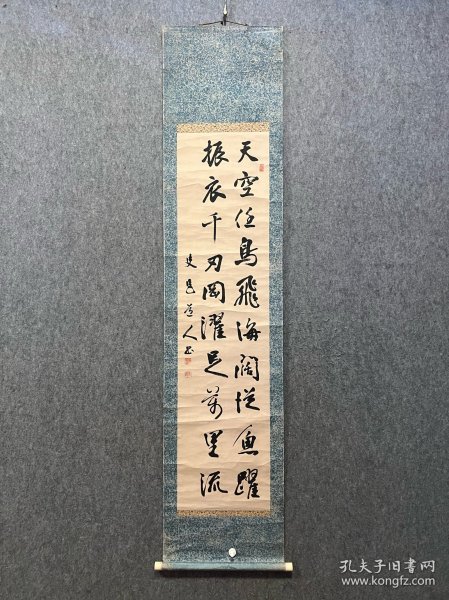 天空任鳥飛海闊従魚躍
振衣千刃岡濯足萬里流
道人書
孔夫子旧书网
www.kongfz.com